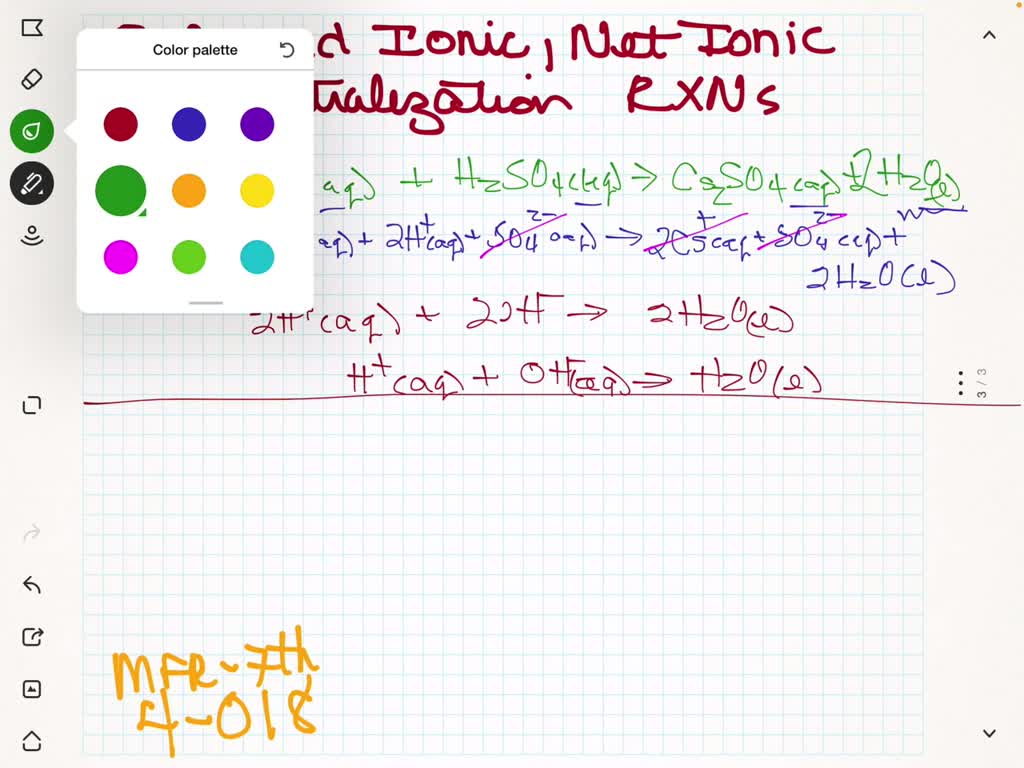 Color palette
d Ionic, Net Ionic
tralization RXNs
aq) + H2SO4(aq) → Cs2SO4(aq) + 2H2O(l)
aq) + 2H+(aq) + SO4 2- (aq) → 2Cs+(aq) + SO4 2- (aq) +
2H2O(l)
2H+(aq) + 2OH- → 2H2O(l)
H+(aq) + OH-(aq) → H2O(l)
3 / 3
MFR-7th
4-018